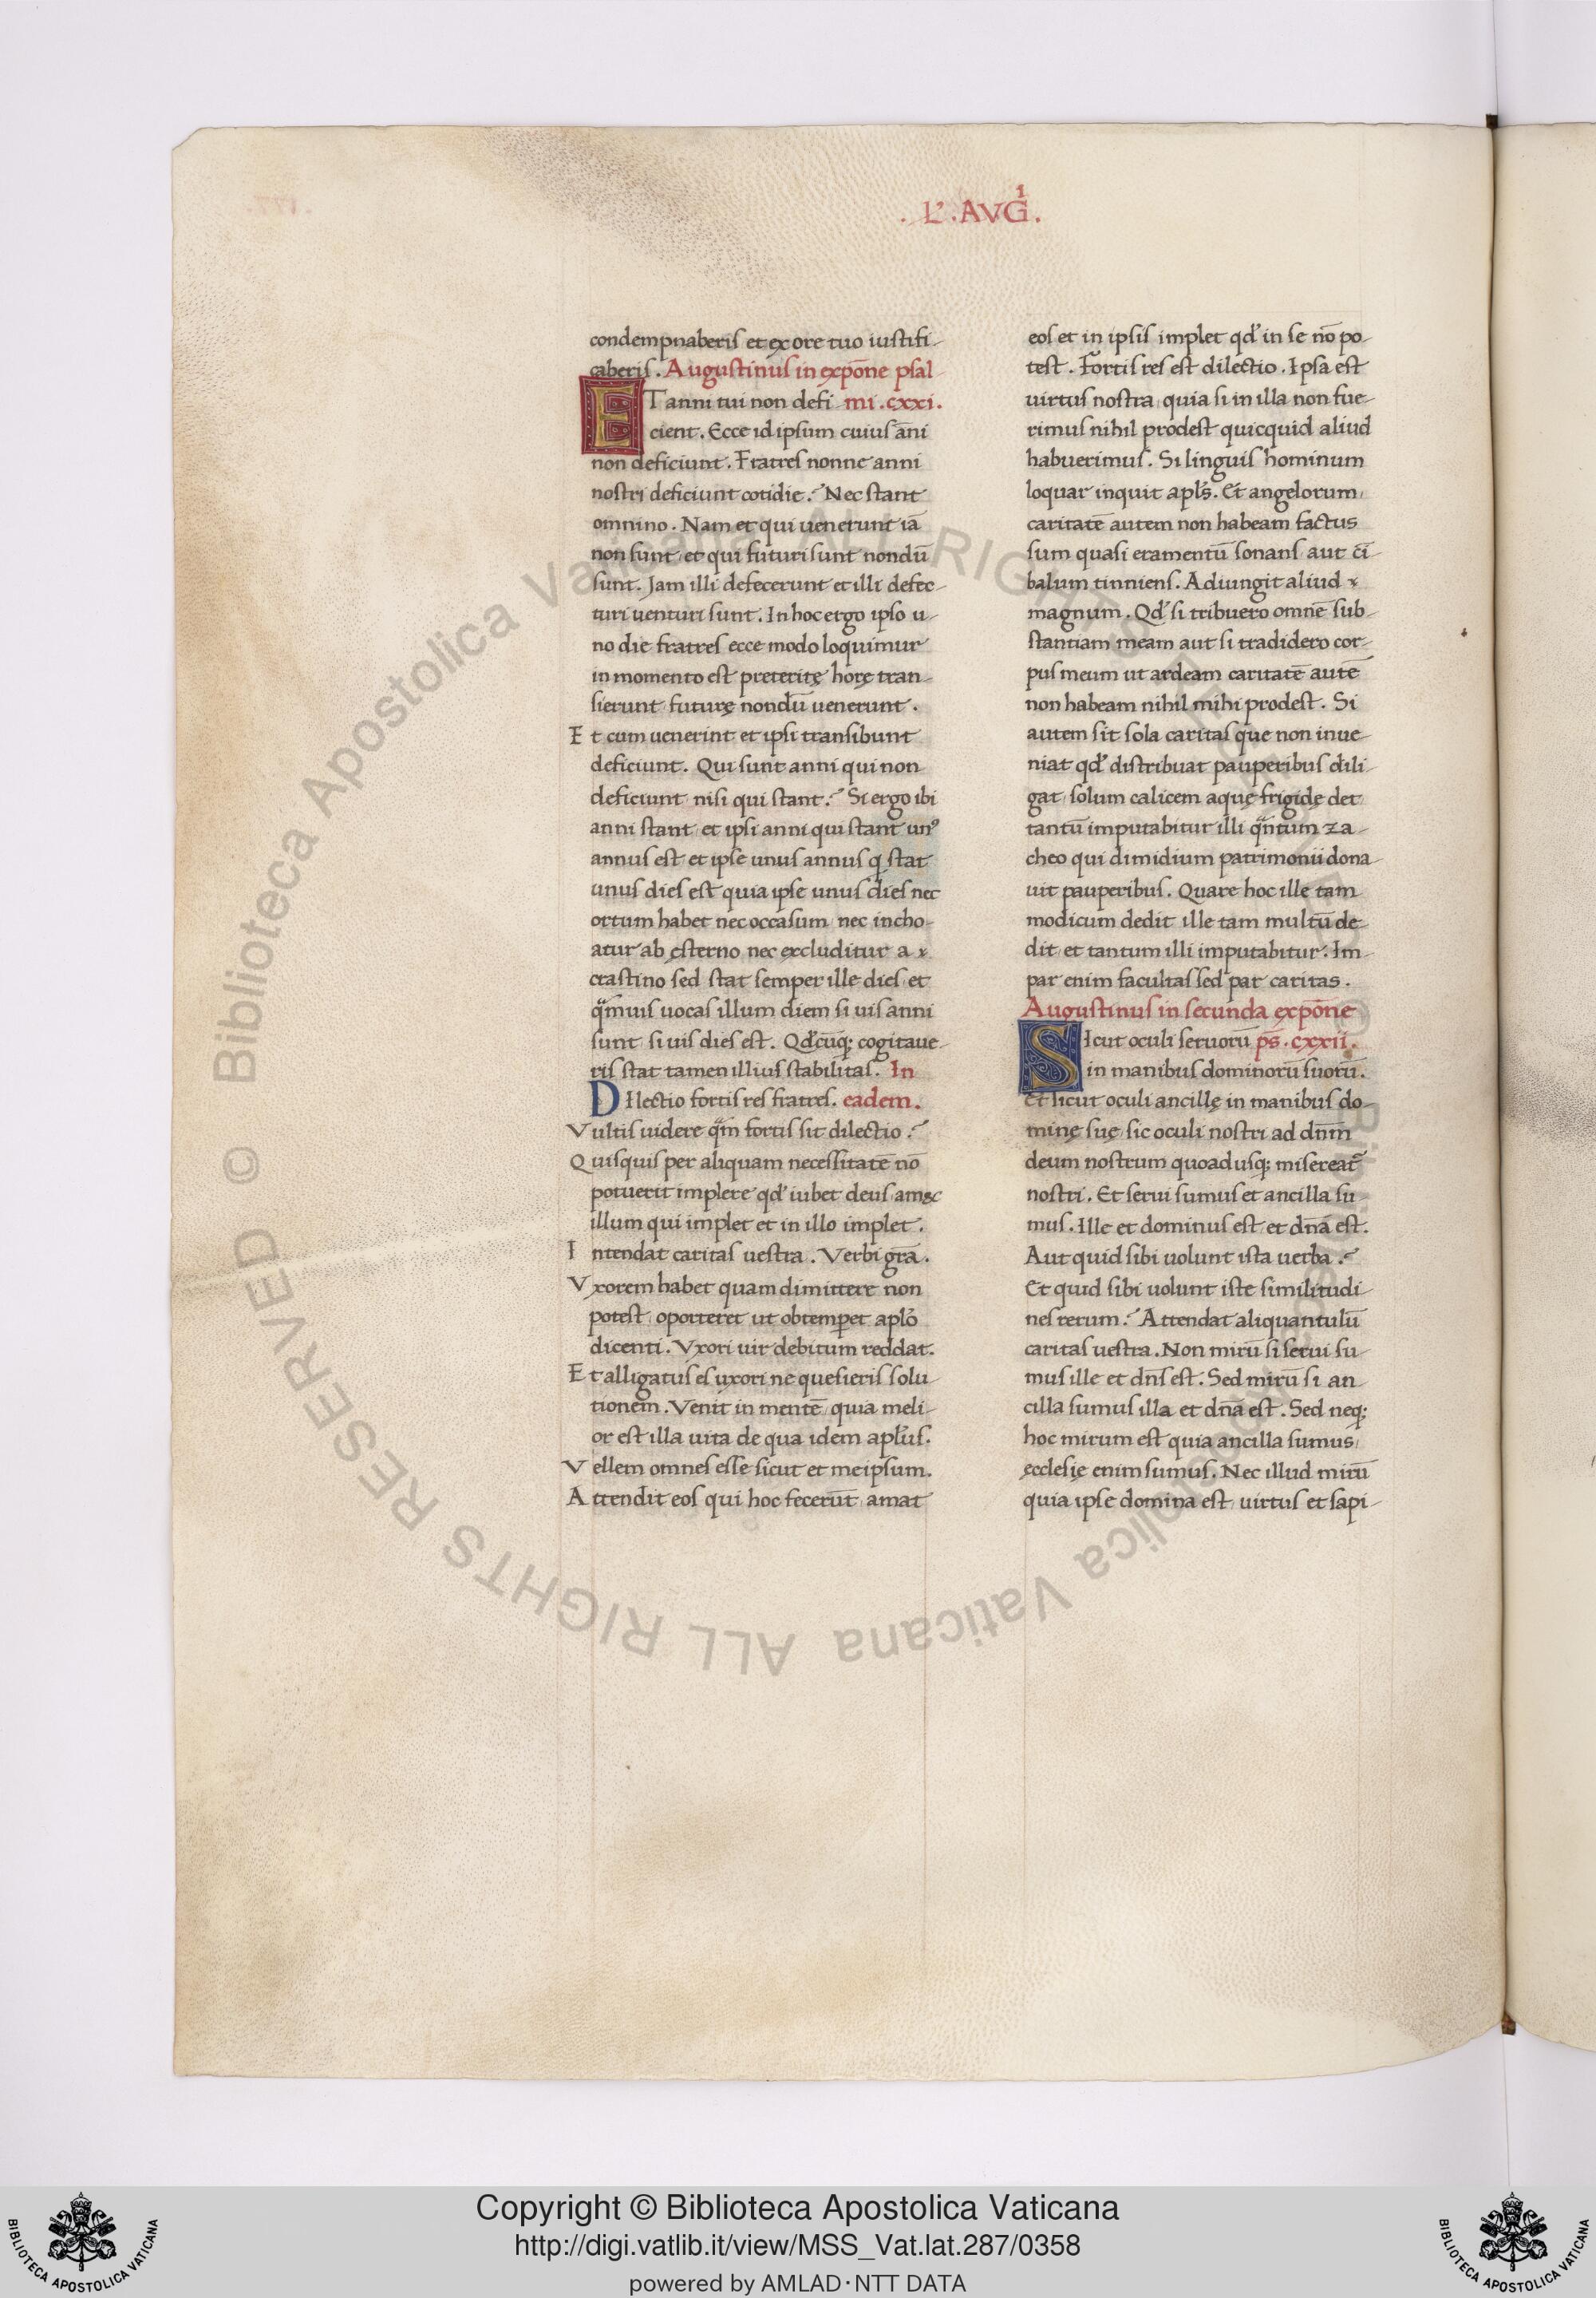 . L’ . AVGⁱ .
condempnaberis et ex ore tuo iustifi-
caberis . Augustinus in expōne psal-
ET anni tui non defi- mi . cxxi .
cient . Ecce id ipsum cuius āni
non deficiunt . Fratres nonne anni
nostri deficiunt cotidie ? Nec stant
omnino . Nam et qui uenerunt iā
non sunt et qui futuri sunt nondū
sunt . Jam illi defecerunt et illi defec-
turi uenturi sunt . In hoc ergo ipso u-
no die fratres ecce modo loquimur
in momento est preteritę horę tran-
sierunt futurę nondū uenerunt .
Et cum uenerint et ipsi transibunt
deficiunt . Qui sunt anni qui non
deficiunt nisi qui stant ? Si ergo ibi
anni stant et ipsi anni qui stant unꝰ
annus est et ipse unus annus q stat
unus dies est quia ipse unus dies nec
ortum habet nec occasum nec incho-
atur ab esterno nec excluditur a
crastino sed stat semper ille dies et
q̄muis uocas illum diem si uis anni
sunt si uis dies est . Qd’cūq; cogitaue-
ris stat tamen illius stabilitas . In
DIlectio fortis res fratres . eadem .
Vultis uidere q̄m fortis sit dilectio ?
Quisquis per aliquam necessitatē nō
potuerit implere qd’ iubet deus amec
illum qui implet et in illo implet .
Intendat caritas uestra . Verbi grā .
Vxorem habet quam dimittere non
potest oporteret ut obtemꝑet aplō
dicenti . Vxori uir debitum reddat .
Et alligatus es uxori ne quesieris solu-
tionem . Venit in mentē quia meli-
or est illa uita de qua idem apl’us .
Vellem omnes esse sicut et meipsum .
Attendit eos qui hoc fecerūt amat
eos et in ipsis implet qd’ in se nō po-
test . Fortis res est dilectio . Ipsa est
uirtus nostra quia si in illa non fue-
rimus nihil prodest quicquid aliud
habuerimus . Si linguis hominum
loquar inquit apl’s . Et angelorum
caritatē autem non habeam factus
sum quasi eramentū sonans aut cī-
balum tinniens . Adiungit aliud
magnum . Qd’ si tribuero omnē sub-
stantiam meam aut si tradidero cor-
pus meum ut ardeam caritatē autē
non habeam nihil mihi prodest . Si
autem sit sola caritas que non inue-
niat qd’ distribuat pauperibus dili-
gat solum calicem aquę frigidę det
tantū imputabitur illi q̄ntum za-
cheo qui dimidium patrimonii dona-
uit pauperibus . Quare hoc ille tam
modicum dedit ille tam multū de-
dit et tantum illi imputabitur ? Im-
par enim facultas sed par caritas .
Augustinus in secunda expōne
SIcut oculi seruorū ps̄ . cxxii .
in manibus dominorū suorū .
Et sicut oculi ancillę in manibus do-
minę suę sic oculi nostri ad dnm̄
deum nostrum quoadusq; misereat᷑
nostri . Et serui sumus et ancilla su-
mus . Ille et dominus est et dn̄a est .
Aut quid sibi uolunt ista uerba ?
Et quid sibi uolunt iste similitudi-
nes rerum ? Attendat aliquantulū
caritas uestra . Non mirū si serui su-
mus ille et dn̄s est . Sed mirū si an-
cilla sumus illa et dn̄a est . Sed neq;
hoc mirum est quia ancilla sumus
ęcclesię enim sumus . Nec illud mirū
quia ipse domina est uirtus et sapi-
Biblioteca Apostolica Vaticana ALL RIGHTS RESERVED ©
Copyright © Biblioteca Apostolica Vaticana
http://digi.vatlib.it/view/MSS_Vat.lat.287/0358
powered by AMLAD · NTT DATA
BIBLIOTECA APOSTOLICA VATICANA
BIBLIOTECA APOSTOLICA VATICANA